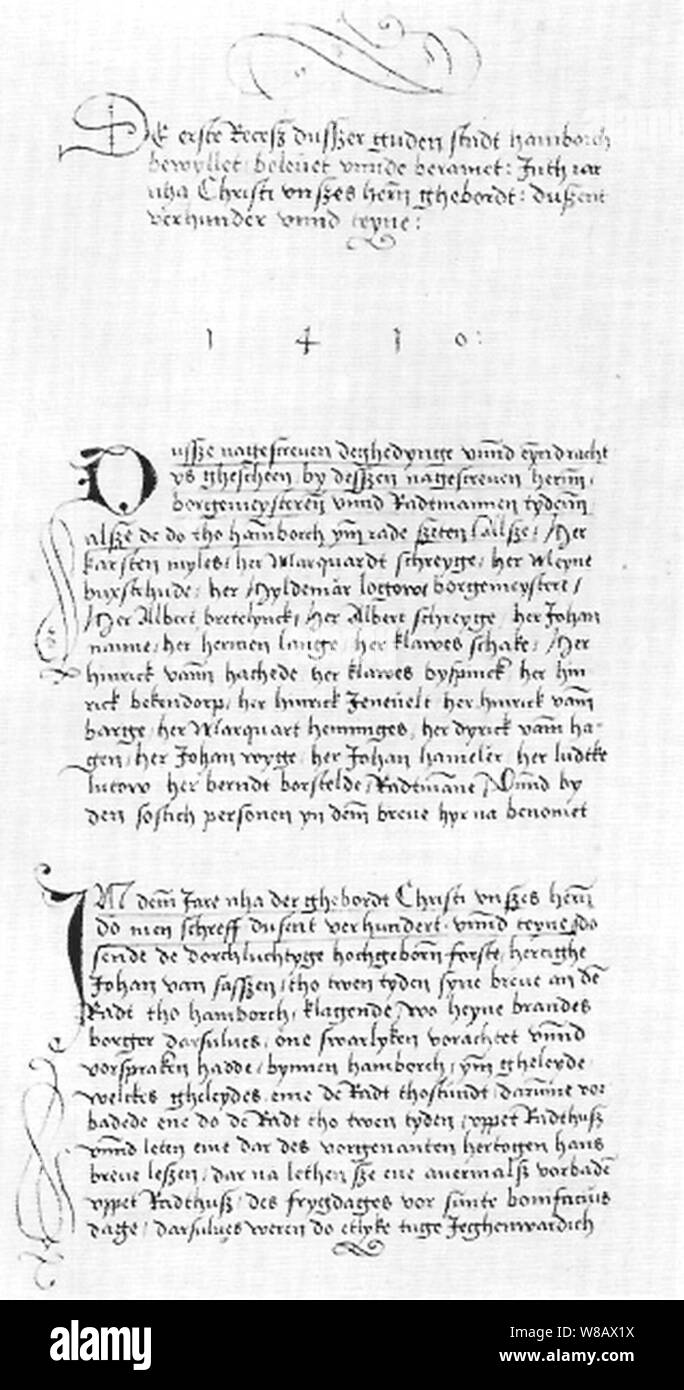 De erste Recesz dusszer guden stadt hamborch
bewyllet beleuet vnnde beramet: Inth iar
nha Christi vnszes herñ ghebordt: duszent
verhunder vnnd teyne:
1 4 1 0:
Dussze nagescreuen deghedynge vnnd eyndracht
ys ghescheen by desszen nagescreuen herenn,
borgemeysterenn vnnd Radtmannen tydenn
alsze de do tho hamborch ym rade szeten / Her
karsten myles, her Marquardt schreyge, her Meyne
buxstehude, her Hyldemar logtow borgemeystere /
Her Albert bretelynck, Her Albert schreyge her Johan
nanne, her hermen lange, her klawes schoke, Her
hinrick vann hachede her klawes byspinck her hin
rick bekendorp, her hinrick Jeneuelt her hinrick vam
barge, her Marquart henninges, her dyrick vam ha=
gen, her Johan wyge, her Johan hameler, her ludeke
lutow her berndt borstelde, Radtmanne, Vnnd by
den sostich personen yn dem breue hyr na benomet
IN dem Jare nha der ghebordt Christi vnszes herñ
do men schreff dusent verhundert vnnd teyne, do
sende de dorchluchtyge hochgeborn forste, hertighe
Johan van sasszen, tho twen tyden syne breue an de
Radt tho hamborch, klagende, wo heyne brandes
borger darsulues, one swarlyken vorachtet vnnd
vorspraken hadde, bynnen hamborch, ym gheleyde
welckes gheleydes eme de Radt thostundt, darumme vor
badede ene do de Radt tho twen tyden, vppet Radthusz
vnnd leten eme dar des vorgenanten hertogen hans
breue leszen, dar na lethen sze ene auermalsz vorbaden
vppet Radthusz, des frygdages vor sunte bonifacius
dage, darsulues weren do etlyke tuge Jeghenwardich
alamy
Image ID: W8AX1X
www.alamy.com